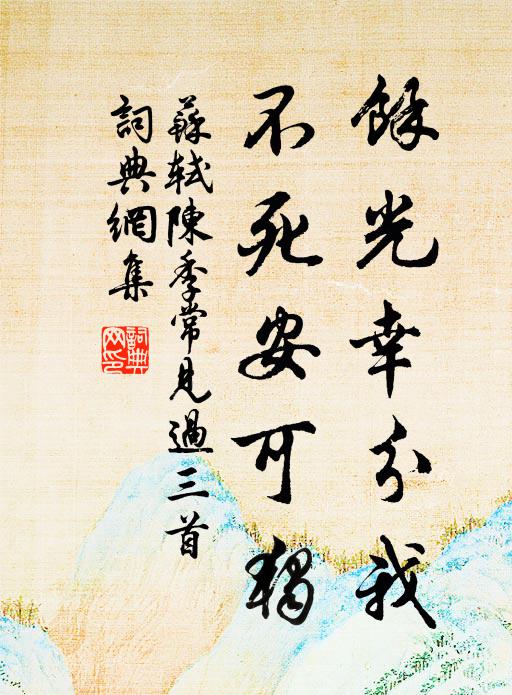 餘光幸分我
不死安可獨
蘇軾陳季常見過三首
詞典網集
詞典網印